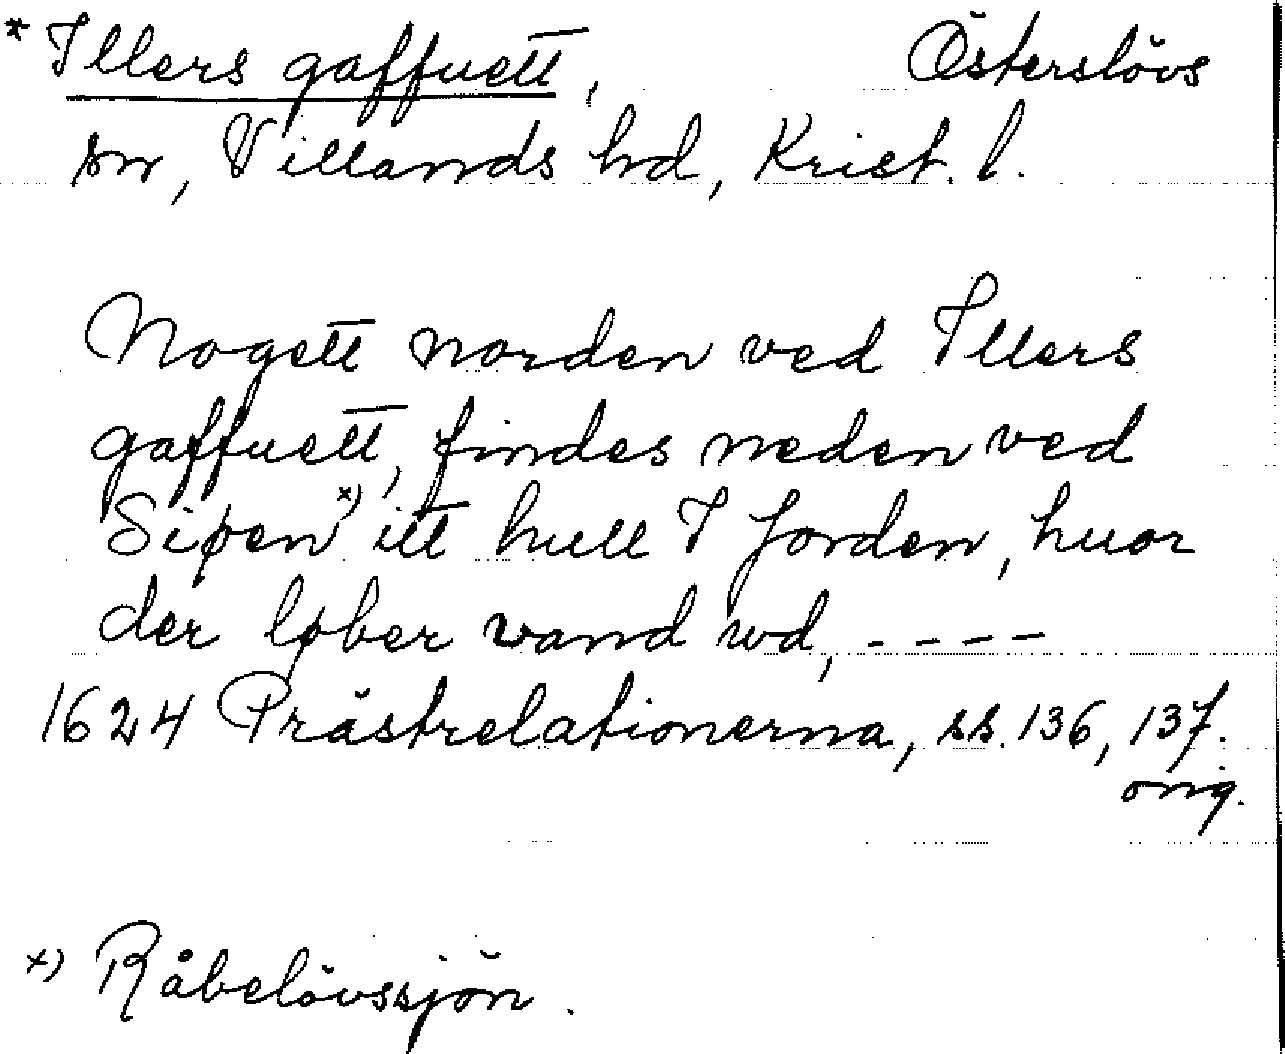 * Illers gaffuett, Österslövs
sn, Villands hd, Krist. l.
Nogett norden ved Illers
gaffuett, findes neden ved
Siøen x) itt hull I Jorden, huor
der løber vand wd, - - - -
1624 Prästrelationerna, ss. 136, 137.
orig.
x) Råbelövssjön.